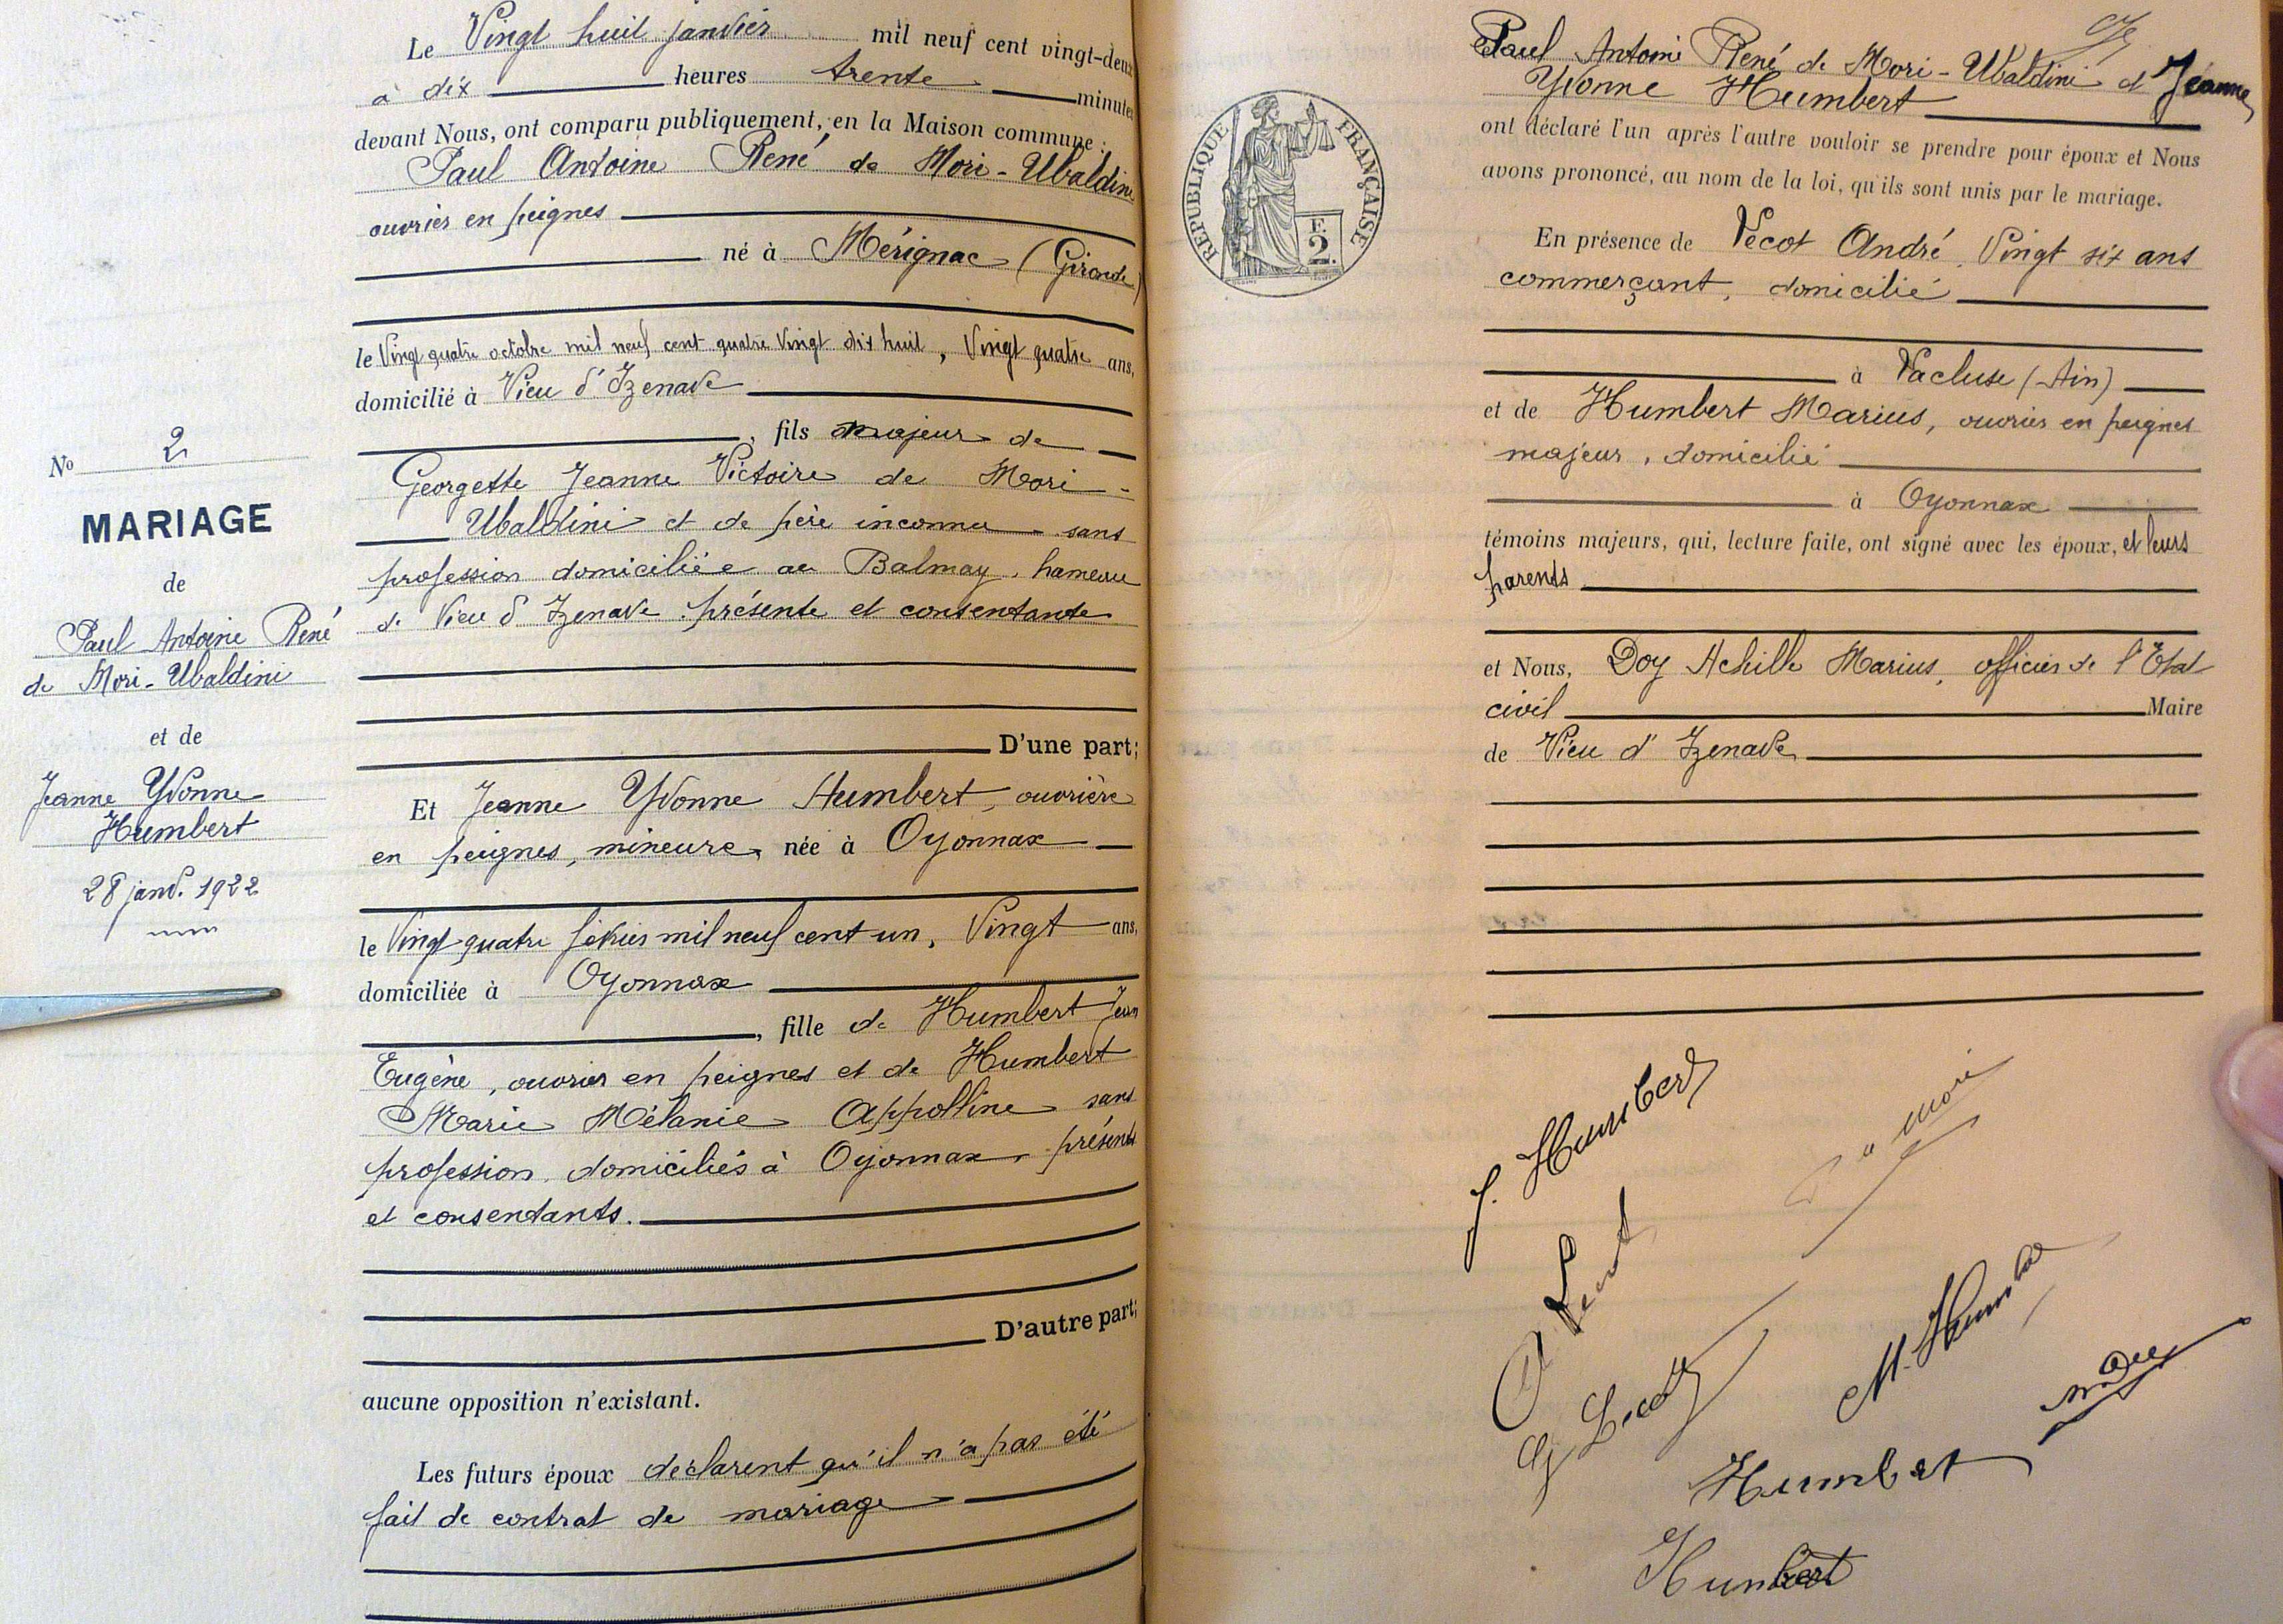 Le Vingt huit janvier mil neuf cent vingt-deux
à dix heures trente minutes
devant Nous, ont comparu publiquement, en la Maison commune :
Paul Antoine René de Mori-Ubaldini
ouvrier en peignes
né à Mérignac (Gironde)
le Vingt quatre octobre mil neuf cent quatre vingt dix huit, Vingt quatre ans,
domicilié à Vieu d'Izenave
, fils majeur de
Georgette Jeanne Victoire de Mori-
Ubaldini et de père inconnu sans
profession domiciliée au Balmay, hameau
de Vieu d'Izenave présente et consentante
D'une part;
Et Jeanne Yvonne Humbert, ouvrière
en peignes, mineure, née à Oyonnax
le Vingt quatre février mil neuf cent un, Vingt ans,
domiciliée à Oyonnax
, fille de Humbert Jean
Eugène, ouvrier en peignes et de Humbert
Marie Mélanie Appolline sans
profession, domiciliés à Oyonnax, présents
et consentants.
D'autre part;
aucune opposition n'existant.
Les futurs époux déclarent qu'il n'a pas été
fait de contrat de mariage
No 2
MARIAGE
de
Paul Antoine René
de Mori-Ubaldini
et de
Jeanne Yvonne
Humbert
28 janv. 1922
Paul Antoine René de Mori-Ubaldini et Jeanne
Yvonne Humbert
ont déclaré l'un après l'autre vouloir se prendre pour époux et Nous
avons prononcé, au nom de la loi, qu'ils sont unis par le mariage.
RÉPUBLIQUE FRANÇAISE
F.
2.
En présence de Vecot André, Vingt six ans
commerçant, domicilié
à Vacluse (Ain)
et de Humbert Marius, ouvrier en peignes
majeur, domicilié
à Oyonnax
témoins majeurs, qui, lecture faite, ont signé avec les époux, et leurs
parents
et Nous, Doy Achille Marius, officier de l'Etat
civil Maire
de Vieu d'Izenave
J. Humbert
de Mori
M. Humbert
Humbert
Humbert